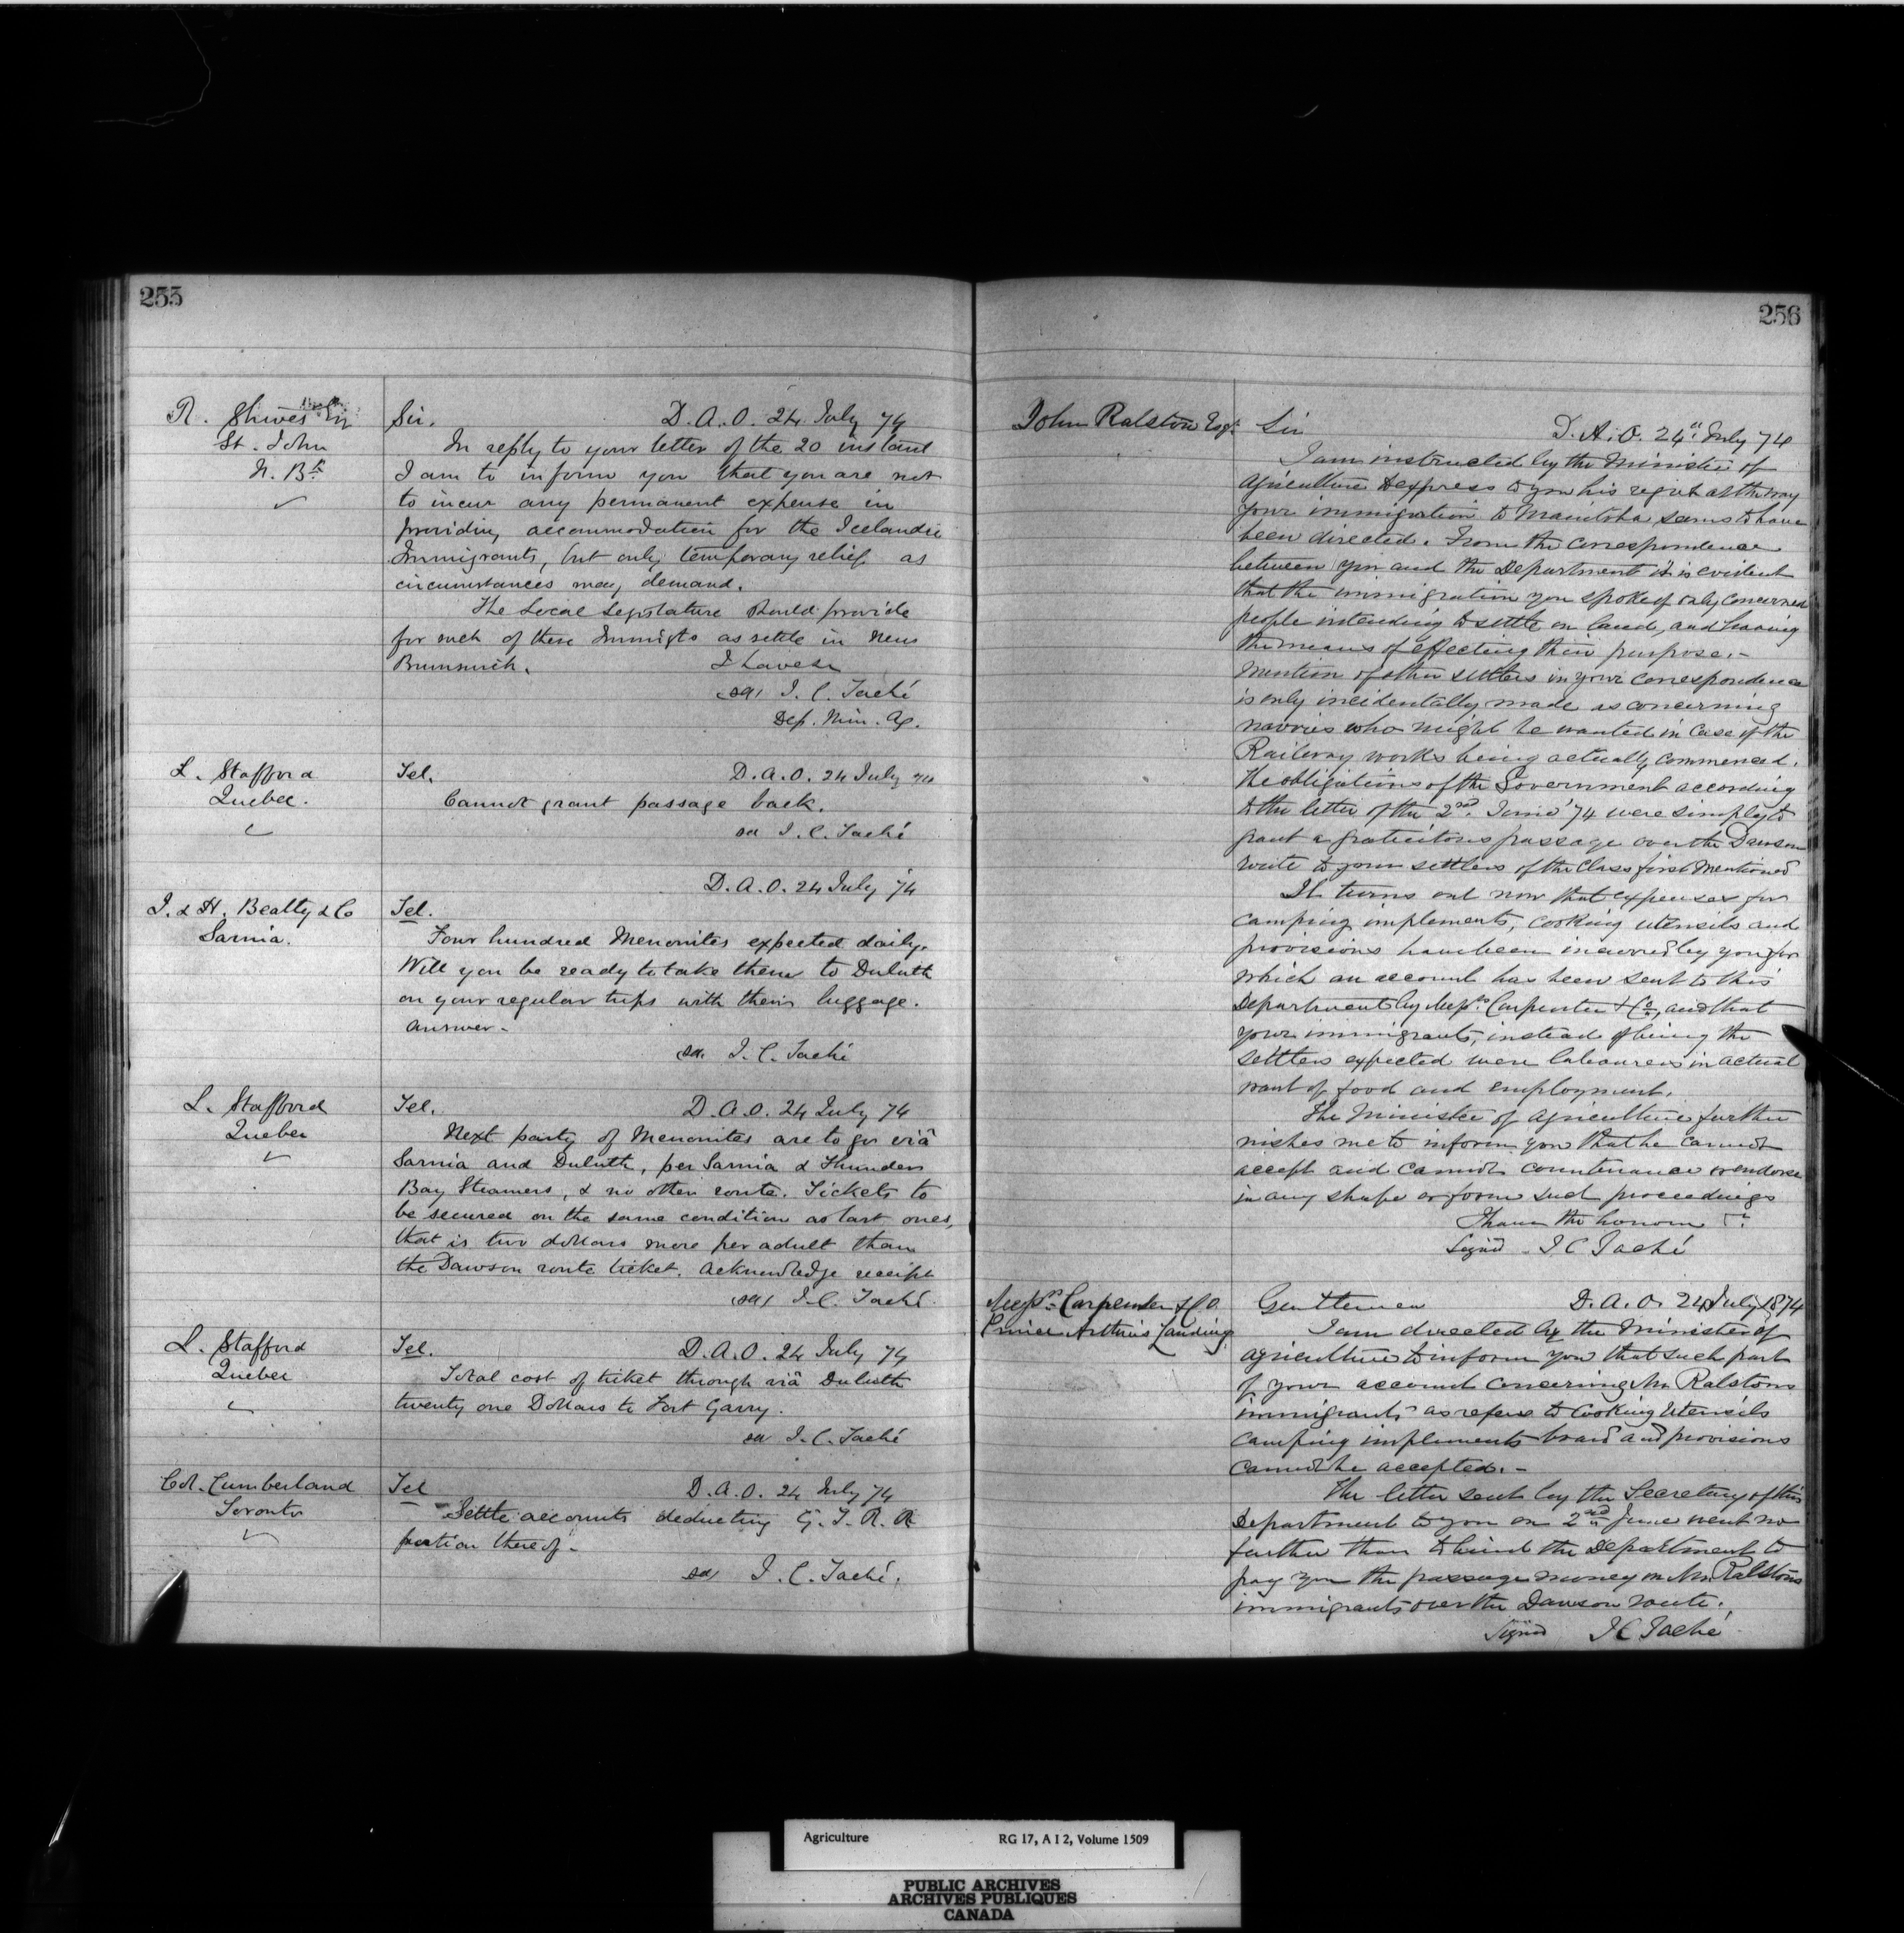 255
R. Shives Esq
St. John
N. Bk
Sir. D. A. O. 24 July 74
In reply to your letter of the 20 instant
I am to inform you that you are not
to incur any permanent expense in
providing accommodation for the Icelandic
Immigrants, but only temporary relief as
circumstances may demand.
The Local Legislature should provide
for such of these Immigts as settle in New
Brunswick. I have &c
sd/ J. C. Taché
Dep. Min. Ag.
L. Stafford
Quebec.
Tel. D. A. O. 24 July 74
Cannot grant passage back.
sd J. C. Taché
D. A. O. 24 July 74
J. & H. Beatty & Co
Sarnia.
Tel.
Four hundred Menonites expected daily.
Will you be ready to take them to Duluth
on your regular trips with their luggage.
Answer.
sd. J. C. Taché
L. Stafford
Quebec
Tel. D. A. O. 24 July 74
Next party of Menonites are to go viâ
Sarnia and Duluth, per Sarnia & Thunder
Bay Steamers, & no other route. Tickets to
be secured on the same condition as last ones,
that is two dollars more per adult than
the Dawson route ticket. Acknowledge receipt
sd/ J. C. Taché
L. Stafford
Quebec
Tel. D. A. O. 24 July 74
Total cost of ticket through viâ Duluth
twenty one Dollars to Fort Garry.
sd J. C. Taché
Col. Cumberland
Toronto
Tel D. A. O. 24 July 74
Settle accounts deducting G. T. R. R
portion thereof.
sd/ J. C. Taché.
256
John Ralston Esqr
Sir D. A. O. 24th July 74
I am instructed by the Minister of
Agriculture to express to you his regret at the way
your immigration to Manitoba seems to have
been directed. From the correspondence
between you and the Department it is evident
that the immigration you spoke of only concerned
people intending to settle on land, and having
the means of effecting their purpose.-
Mention of other settlers in your correspondence
is only incidentally made as concerning
navvies who might be wanted in case of the
Railway works being actually commenced.
The obligations of the Government according
to the letter of the 2nd. June '74 were simply to
grant a gratuitous passage over the Dawson
route to your settlers of the class first mentioned
It turns out now that expenses for
camping implements, cooking utensils and
provisions have been incurred by you for
which an account has been sent to this
Department by Messrs. Carpenter & Co, and that
your immigrants, instead of being the
settlers expected were labourers in actual
want of food and employment.
The Minister of Agriculture further
wishes me to inform you that he cannot
accept and cannot countenance or endorse
in any shape or form such proceedings
I have the honour &c
Signd J C Taché
Messrs. Carpenter & Co
Prince Arthur's Landing
Gentlemen D. A. O. 24 July 1874
I am directed by the Minister of
Agriculture to inform you that such part
of your account concerning Mr Ralstons
immigrants as refers to cooking utensils
camping implements board and provisions
cannot be accepted.-
The letter sent by the Secretary of this
Department to you on 2nd June went no
further than to bind the Department to
pay you the passage money on Mr Ralstons
immigrants over the Dawson route.
Signd J C Taché
Agriculture RG 17, A I 2, Volume 1509
PUBLIC ARCHIVES
ARCHIVES PUBLIQUES
CANADA